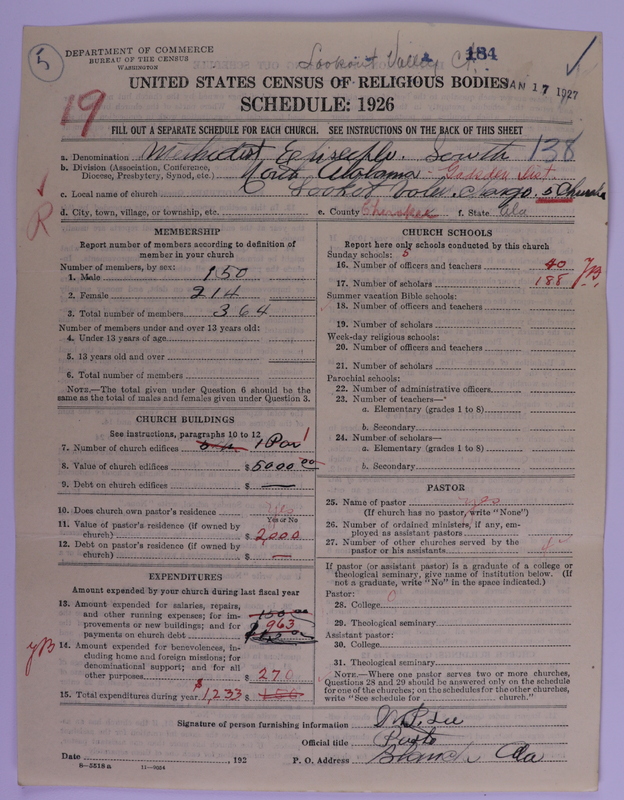 5
DEPARTMENT OF COMMERCE
BUREAU OF THE CENSUS
WASHINGTON
Lookout Valley Ct. 184
UNITED STATES CENSUS OF RELIGIOUS BODIES
JAN 17 1927
SCHEDULE: 1926
19
FILL OUT A SEPARATE SCHEDULE FOR EACH CHURCH. SEE INSTRUCTIONS ON THE BACK OF THIS SHEET
a. Denomination Methodist South 138
b. Division (Association, Conference, Diocese, Presbytery, Synod, etc.) North Alabama Gadsden Dist
c. Local name of church 5 Churches
d. City, town, village, or township, etc. e. County Cherokee f. State Ala
R
MEMBERSHIP
Report number of members according to definition of
member in your church
Number of members, by sex:
1. Male 150
2. Female 214
3. Total number of members 364
Number of members under and over 13 years old:
4. Under 13 years of age
5. 13 years old and over
6. Total number of members
NOTE.—The total given under Question 6 should be the
same as the total of males and females given under Question 3.
CHURCH BUILDINGS
See instructions, paragraphs 10 to 12
7. Number of church edifices 1 Par
8. Value of church edifices $ 5000 00
9. Debt on church edifices $ —
10. Does church own pastor's residence Yes
Yes or No
11. Value of pastor's residence (if owned by
church) $ 2,000
12. Debt on pastor's residence (if owned by
church) $ —
EXPENDITURES
Amount expended by your church during last fiscal year
13. Amount expended for salaries, repairs,
and other running expenses; for im-
provements or new buildings; and for
payments on church debt $ 150.00 963
14. Amount expended for benevolences, in-
cluding home and foreign missions; for
denominational support; and for all
other purposes $ 270
15. Total expenditures during year $1,233 $ 150
CHURCH SCHOOLS
Report here only schools conducted by this church
Sunday schools: 5
16. Number of officers and teachers 40
17. Number of scholars 188
Summer vacation Bible schools:
18. Number of officers and teachers
19. Number of scholars
Week-day religious schools:
20. Number of officers and teachers
21. Number of scholars
Parochial schools:
22. Number of administrative officers
23. Number of teachers—
a. Elementary (grades 1 to 8)
b. Secondary
24. Number of scholars—
a. Elementary (grades 1 to 8)
b. Secondary
PASTOR
25. Name of pastor yes
(If church has no pastor, write "None")
26. Number of ordained ministers, if any, em-
ployed as assistant pastors
27. Number of other churches served by the
pastor or his assistants
If pastor (or assistant pastor) is a graduate of a college or
theological seminary, give name of institution below. (If
not a graduate, write "No" in the space indicated.)
Pastor: 0
28. College
29. Theological seminary
Assistant pastor:
30. College
31. Theological seminary
NOTE.—Where one pastor serves two or more churches,
Questions 28 and 29 should be answered only on the schedule
for one of the churches; on the schedules for the other churches,
write "See schedule for church."
Signature of person furnishing information
Official title
Date , 192 P. O. Address Ala
8—5518 a 11—9064